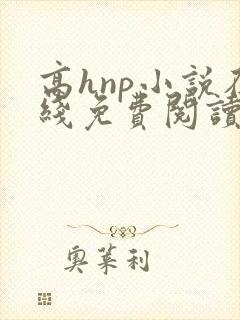 高hnp小説在
綫免費閱讀
奧萊利